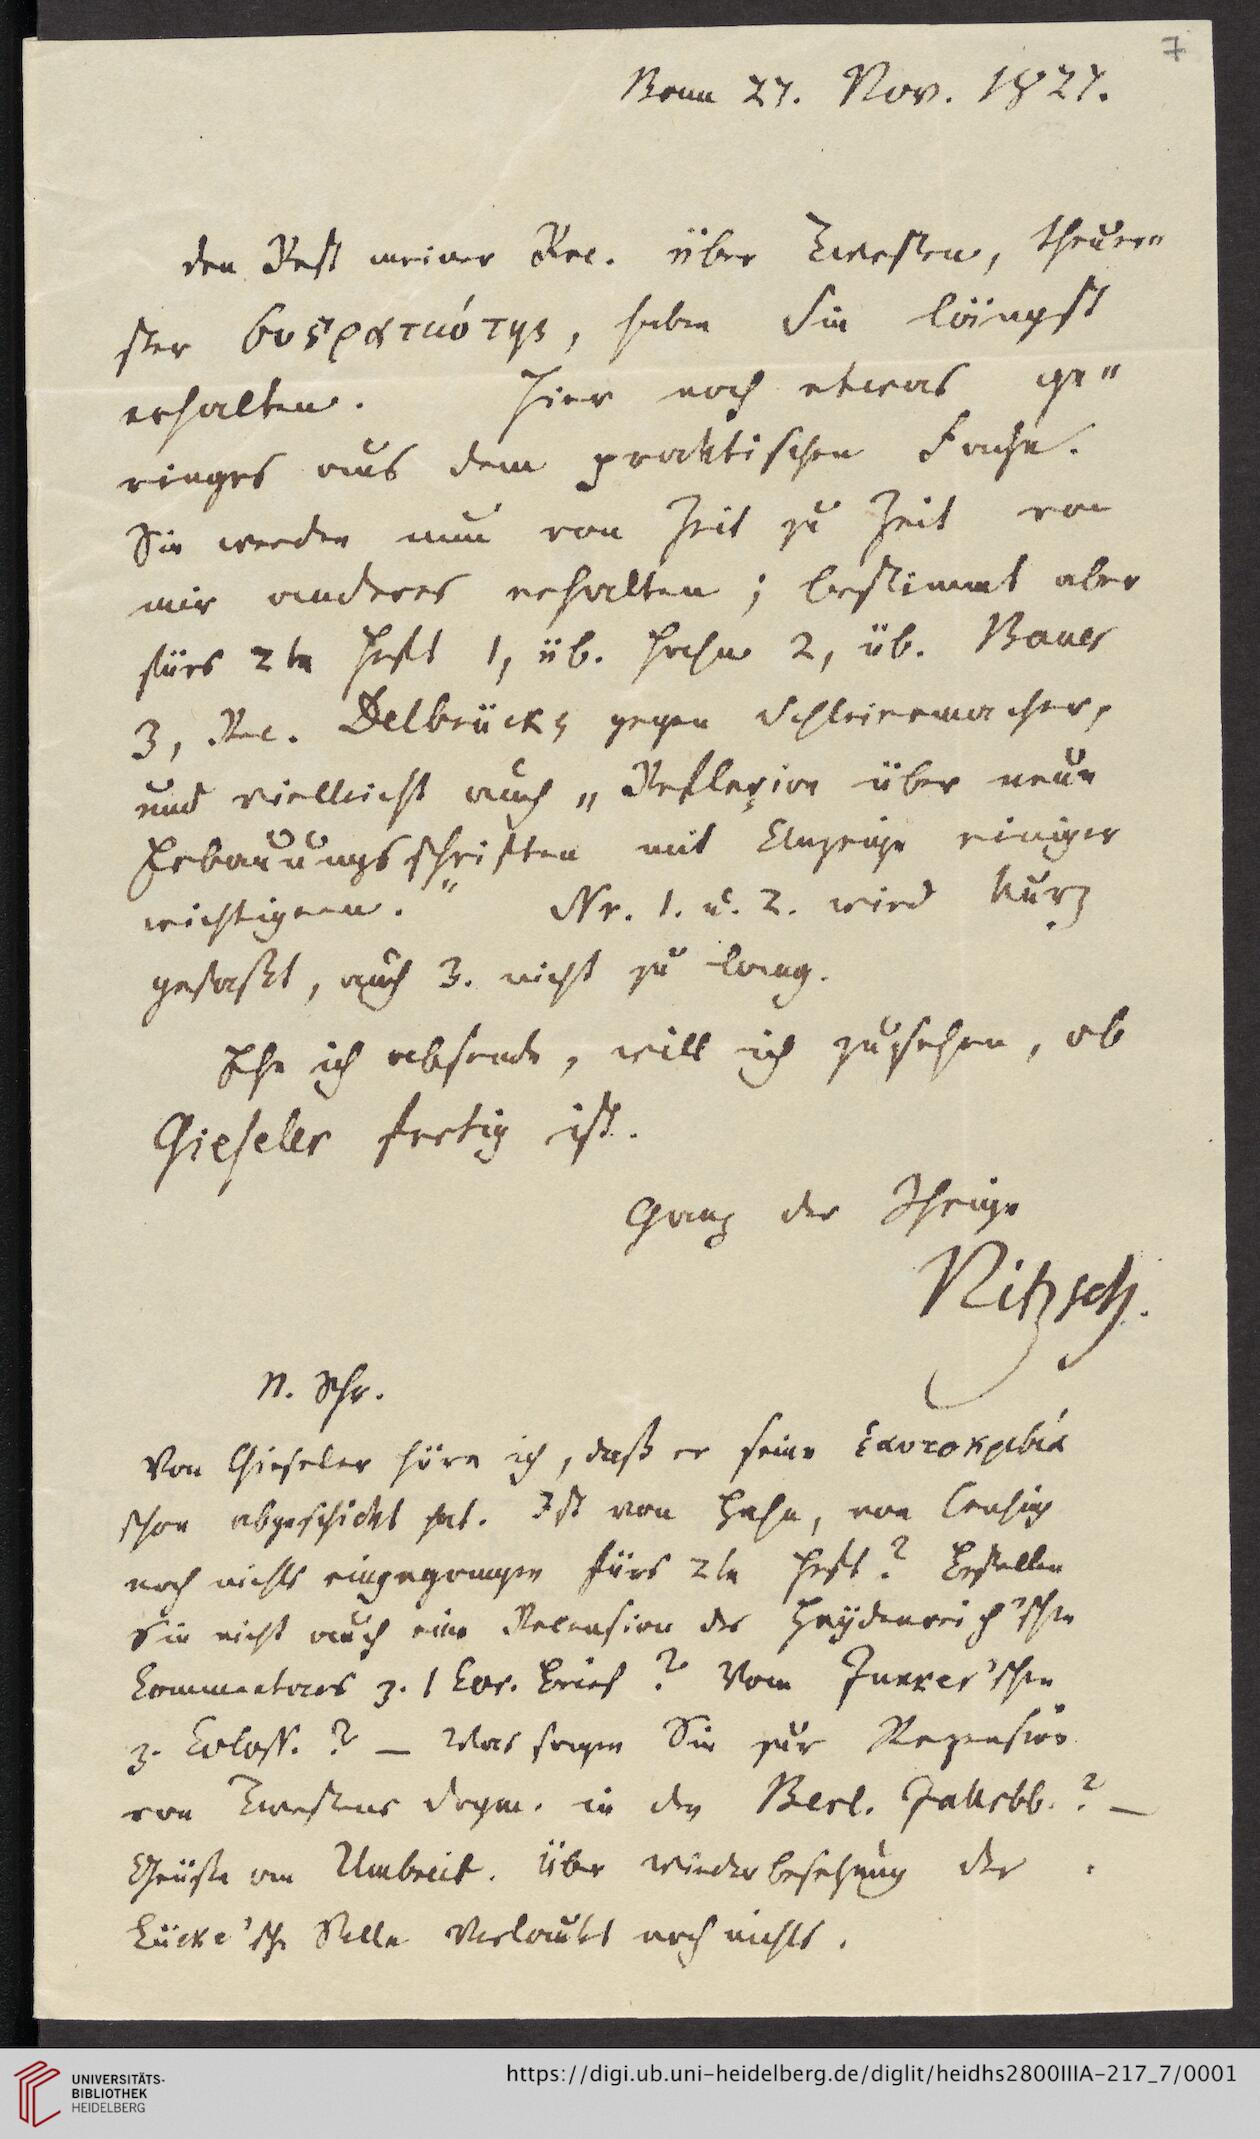 7
Bonn 27. Nov. 1827.
Den Rest meiner Rec. über Twesten, theuer-
ster συστρατιώτης, haben Sie längst
erhalten. Hier noch etwas ge-
ringes aus dem praktischen Fache.
Sie werden nun von Zeit zu Zeit von
mir anderes erhalten; bestimmt aber
fürs 2te Heft 1, üb. Hahn 2, üb. Bauer
3, Rec. Delbrücks gegen Schleiermacher,
und vielleicht auch „Reflexion über neue
Erbauungsschriften mit Anzeige einiger
wichtigern." Nr. 1. u. 2. wird kurz
gefaßt, auch 3. nicht zu lang.
Ehe ich absende, will ich zusehen, ob
Gieseler fertig ist.
Ganz der Ihrige
Nitzsch.
N. Schr.
Von Gieseler höre ich, daß er seine
schon abgeschickt hat. Ist von Hahn, von
noch nichts eingegangen fürs 2te Heft? Bestellen
Sie nicht auch eine Recension des Heydenreich'schen
Commentars z. 1 Cor. Brief? Vom Junker'schen
z. Coloss.? – Was sagen Sie zur Rezension
von Twestens Dogm. in den Berl. Jahrbb.? –
Grüße an Umbreit. Über Wiederbesetzung der
Lücke'sch. Stelle verlautet noch nichts.
UNIVERSITÄTS-
BIBLIOTHEK
HEIDELBERG
https://digi.ub.uni-heidelberg.de/diglit/heidhs2800IIIA-217_7/0001